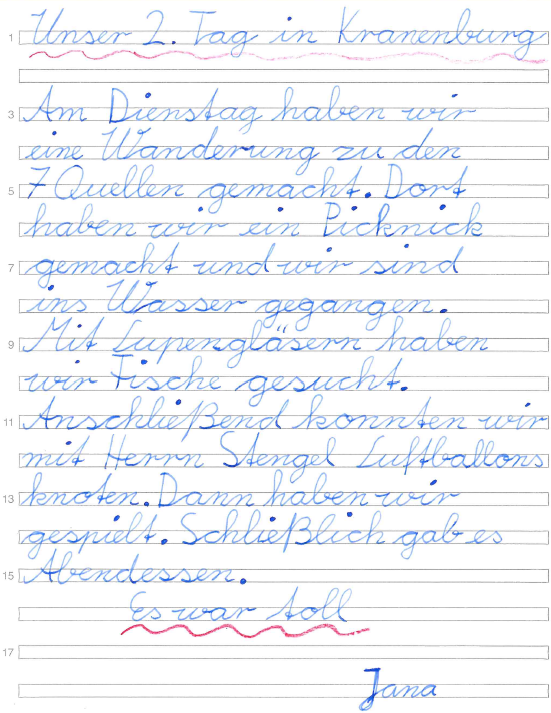 1 Unser 2. Tag in Kranenburg
3 Am Dienstag haben wir
eine Wanderung zu den
5 7 Quellen gemacht. Dort
haben wir ein Picknick
7 gemacht und wir sind
ins Wasser gegangen.
9 Mit Lupengläsern haben
wir Fische gesucht.
11 Anschließend konnten wir
mit Herrn Stengel Luftballons
13 knoten. Dann haben wir
gespielt. Schließlich gab es
15 Abendessen.
Es war toll
17
Jana